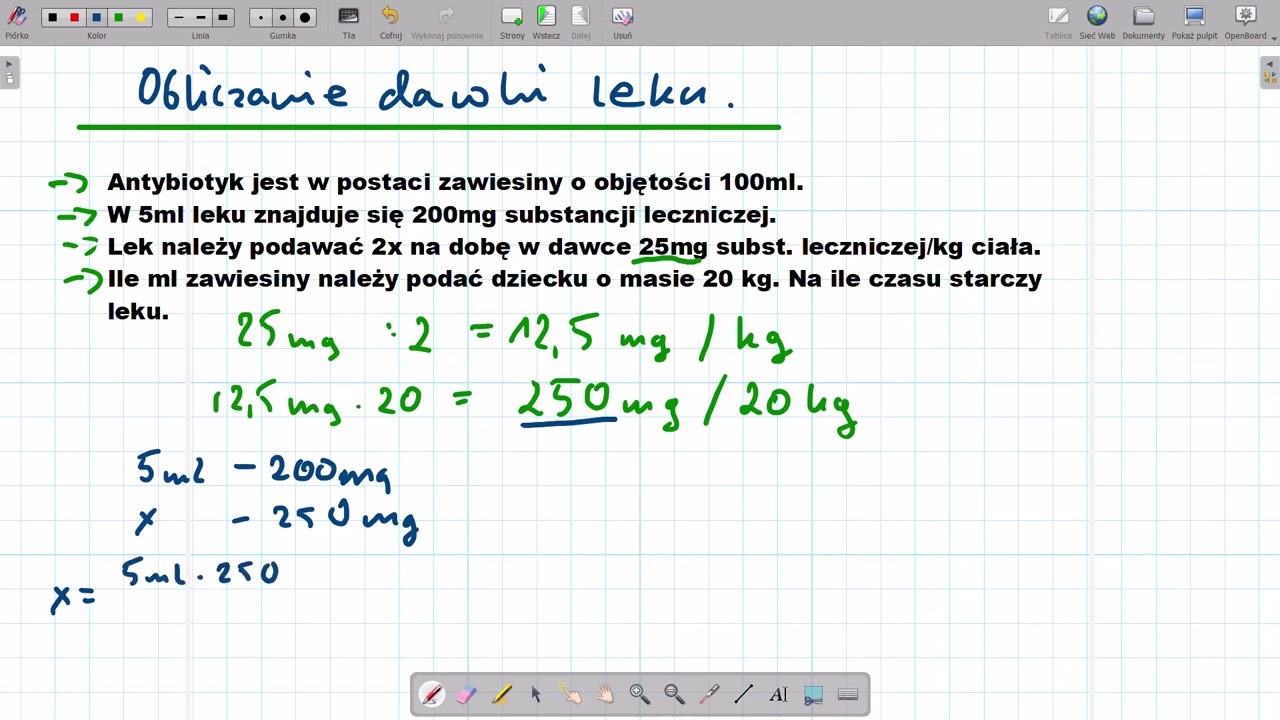 Piórko Kolor Linia Gumka Tła Cofnij Wykonaj ponownie Strony Wstecz Dalej Usuń Tablica Sieć Web Dokumenty Pokaż pulpit OpenBoard
Obliczanie dawki leku.
→ Antybiotyk jest w postaci zawiesiny o objętości 100ml.
→ W 5ml leku znajduje się 200mg substancji leczniczej.
→ Lek należy podawać 2x na dobę w dawce 25mg subst. leczniczej/kg ciała.
→ Ile ml zawiesiny należy podać dziecku o masie 20 kg. Na ile czasu starczy
leku.
25mg : 2 = 12,5 mg / kg
12,5 mg · 20 = 250 mg / 20 kg
5ml - 200mg
x - 250 mg
5ml · 250
x =
AI